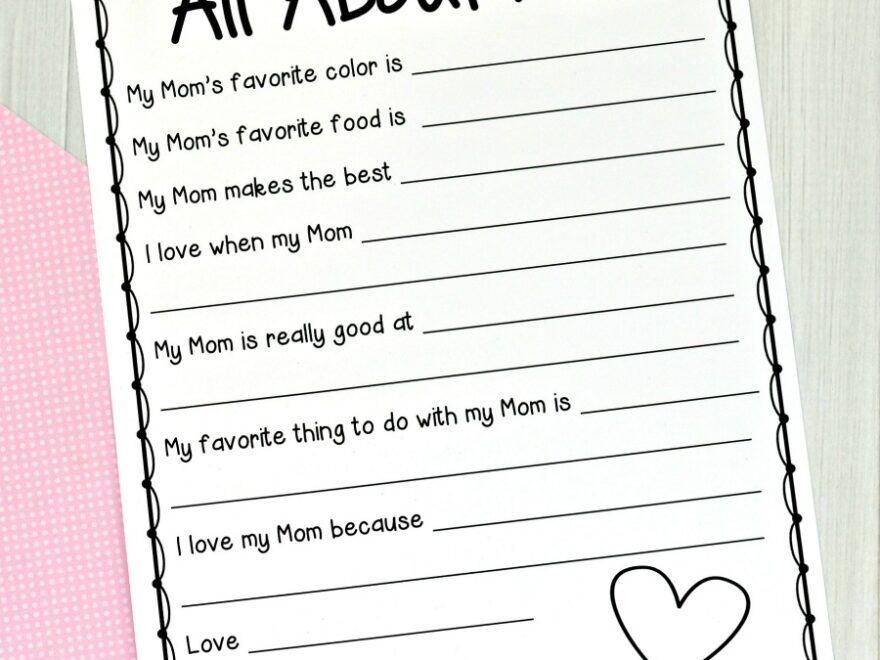 All About
My Mom's favorite color is
My Mom's favorite food is
My Mom makes the best
I love when my Mom
My Mom is really good at
My favorite thing to do with my Mom is
I love my Mom because
Love